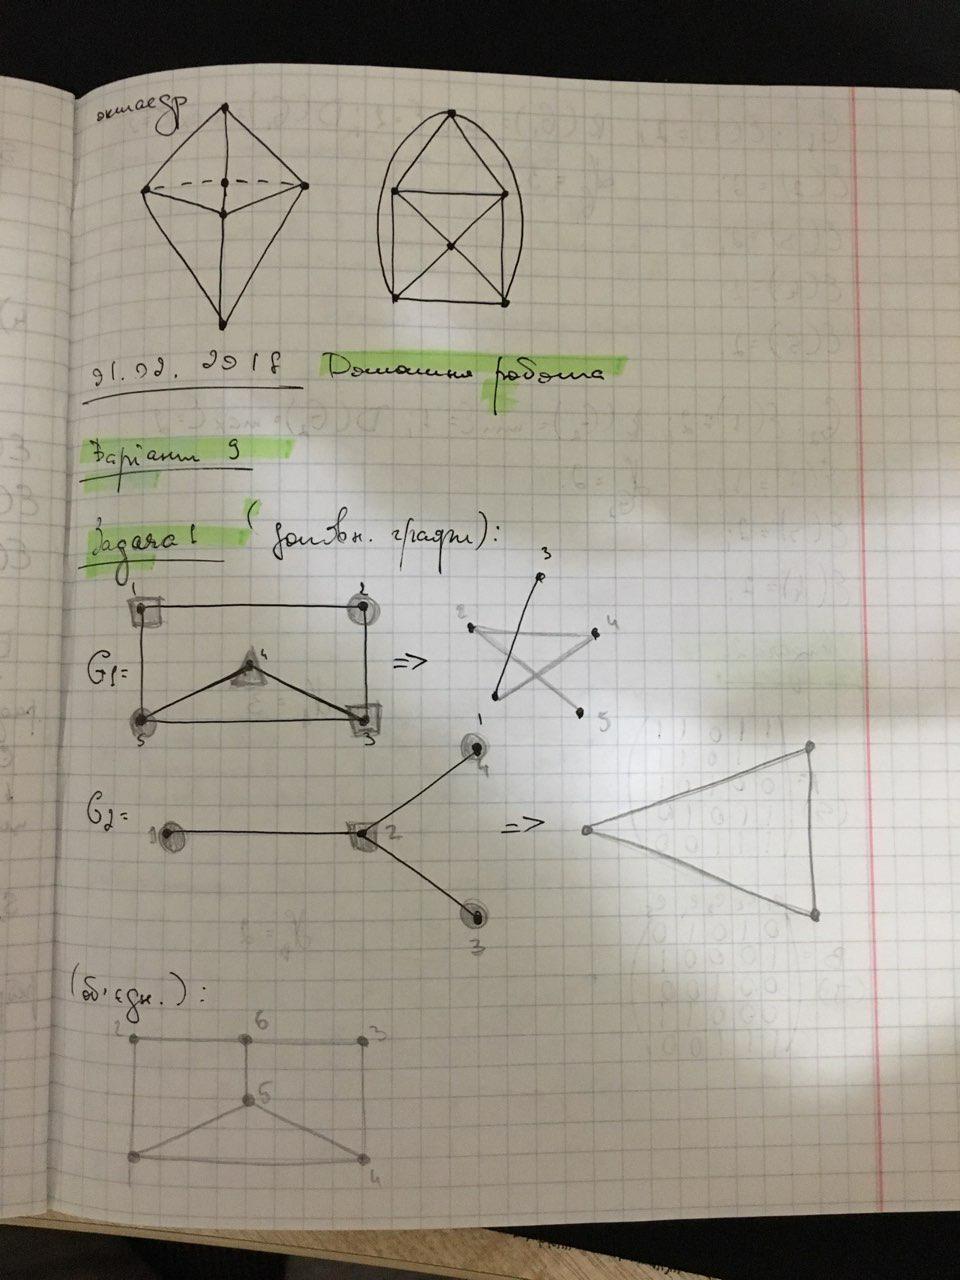 октаедр
01.02.2018 Домашня робота
Варіант 9
Задача 1 (доповн. графи):
1 2 3
G1= 4 => 2 4
5 3 1 5
4
G2= 1 2 =>
3
(об'єдн.):
2 6 3
5
1 4